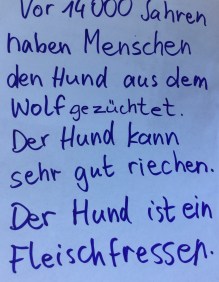 Vor 14000 Jahren
haben Menschen
den Hund aus dem
Wolf gezüchtet.
Der Hund kann
sehr gut riechen.
Der Hund ist ein
Fleischfressen.